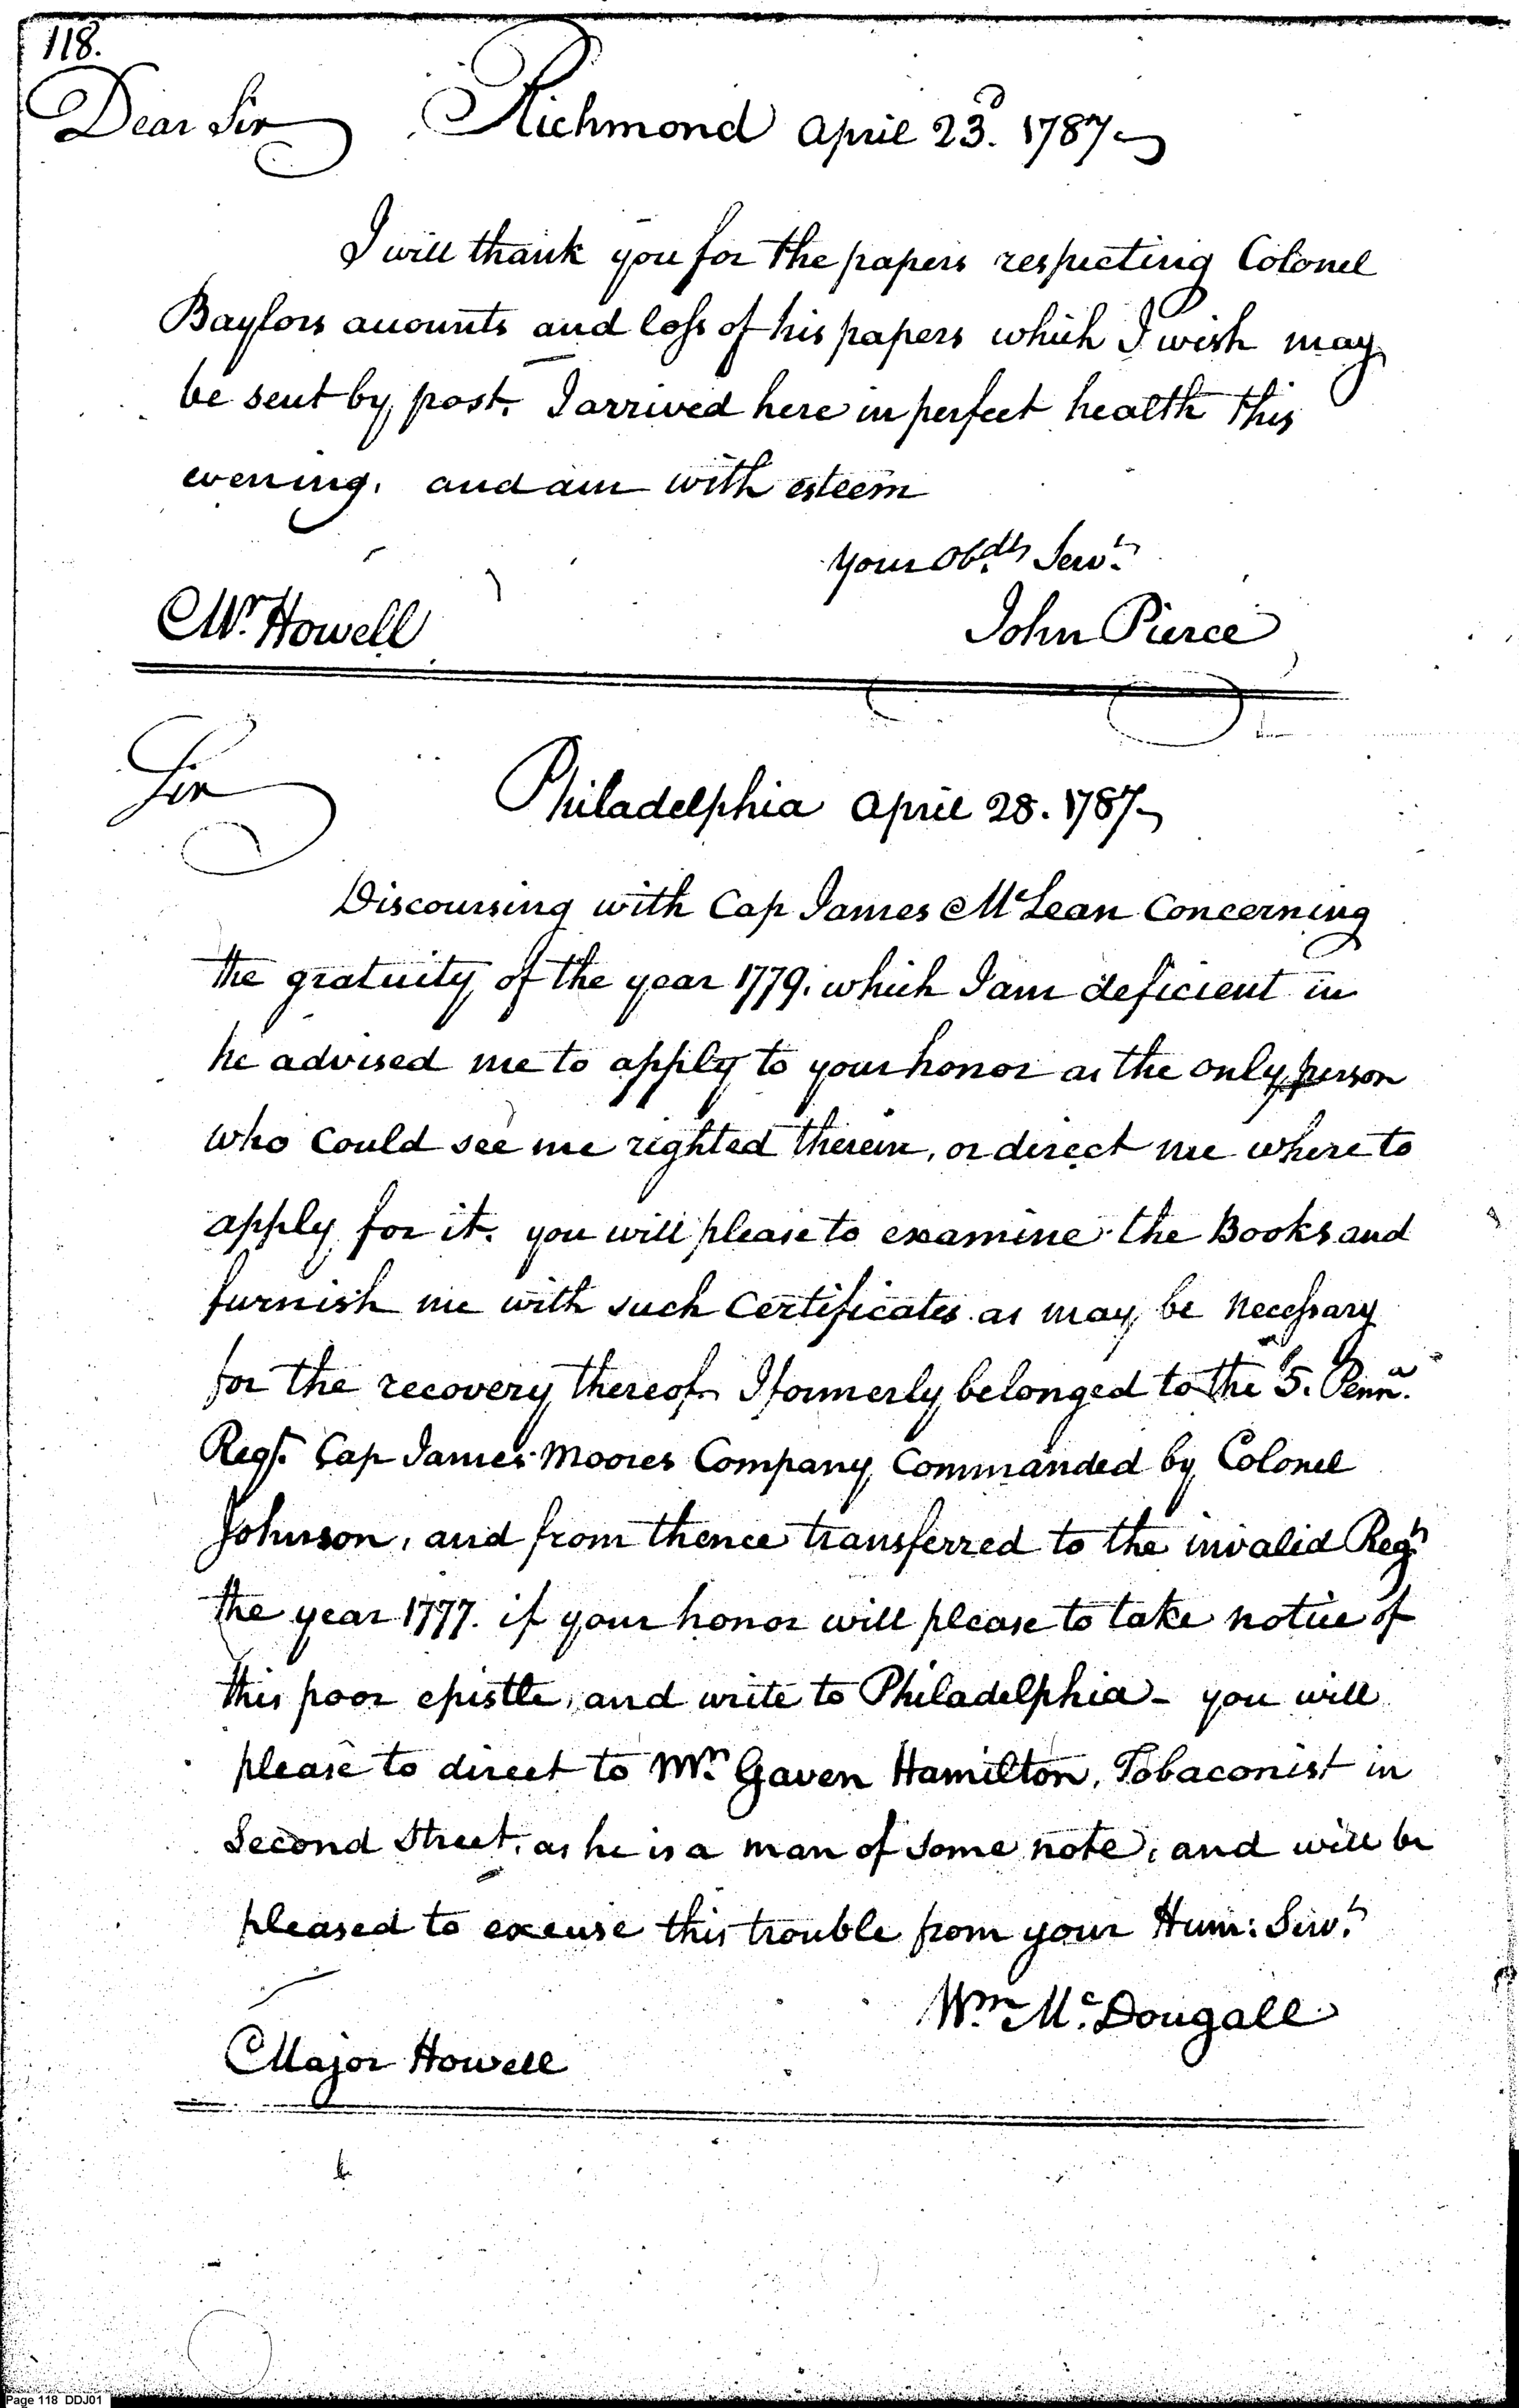 118.
Dear Sir Richmond April 23d. 1787
I will thank you for the papers respecting Colonel
Baylors accounts and loss of his papers which I wish may
be sent by post. I arrived here in perfect health this
evening, and am with esteem
your Obdt. Servt.
Mr. Howell John Pierce
Sir
Philadelphia April 28. 1787
Discoursing with Cap James McLean Concerning
the gratuity of the year 1779. which I am deficient in
he advised me to apply to your honor as the only person
who Could see me righted therein, or direct me where to
apply for it. you will please to examine the Books and
furnish me with such Certificates as may be necessary
for the recovery thereof. I formerly belonged to the 5. Penna.
Regt. Cap James Moores Company Commanded by Colonel
Johnson, and from thence transferred to the invalid Regt.
the year 1777. if your honor will please to take notice of
this poor epistle, and write to Philadelphia - you will
please to direct to Mr. Gaven Hamilton, Tobaconist in
Second Street, as he is a man of some note, and will be
pleased to excuse this trouble from your Hum: Servt.
Wm. Mc.Dougall
Major Howell
Page 118 DDJ01